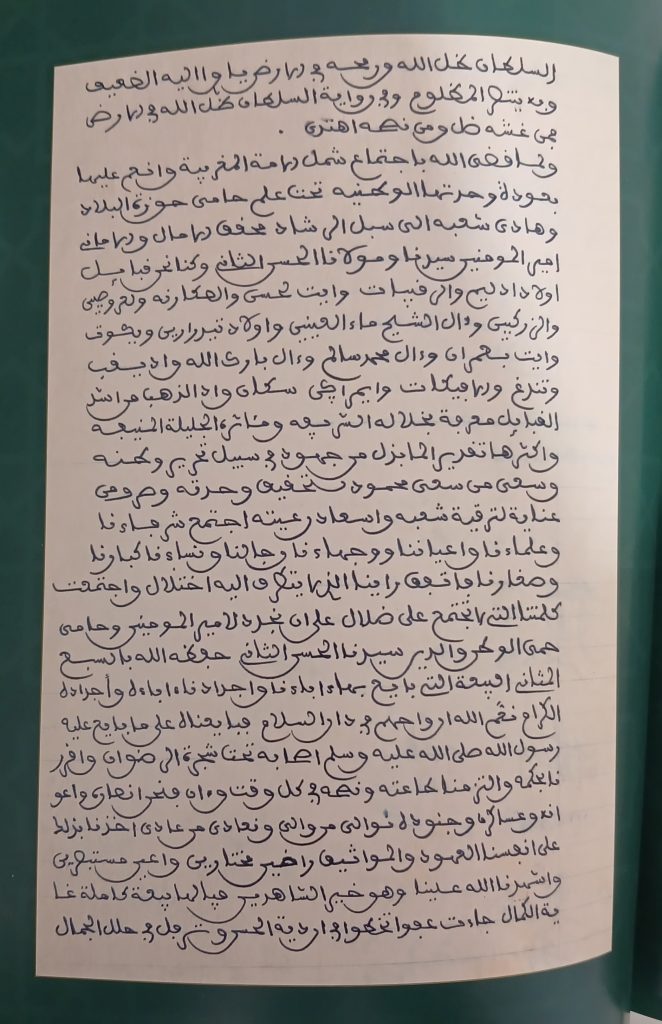 السلطان ظل الله ورمحه في الارض يأوي اليه الضعيف
وبه ينتصر المظلوم وفي رواية السلطان ظل الله في الارض
فمن غشه ضل ومن نصحه اهتدى .
ولما قضى الله باجتماع شمل الامة المغربية وانعم عليها
بعودة وحدتها الوطنية تحت علم حامي حوزة البلاد
وهادي شعبه الى سبل الرشاد محقق الامال والاماني
امير المومنين سيدنا ومولانا الحسن الثاني وكنا نحن قبايل
اولاد ادليم والرقيبات وايت لحسن والعكارنه والعروصيين
والزركيين وءال الشيخ ماء العينين واولاد تيدرارين ويكوت
وايت بعمران وءال محمد سالم وءال بارك الله واد يعقب
وتندغ وفيكات وايمراكن سكان واد الذهب من اشد
القبايل معرفة بخلاله الشريفه ومئاثره الجليلة المنيفه
واكثرها تقدير لما بذل من جهود في سبيل تحرير وطنه
وسعى من سعي محمود لتحقيق وحدته وصرف من
عناية لترقية شعبه واسعاد رعيته اجتمع شرفاءنا
وعلماءنا واعياننا ووجهاءنا ورجالنا ونساءنا كبارنا
وصغارنا فاتفق راينا الذي لا يتطرق اليه اختلال واجتمعت
كلمتنا التي لا تجتمع على ضلال على ان نجدد لامير المومنين وحامي
حمى الوطن والدين سيدنا الحسن الثاني حفظه الله بالسبع
المثاني البيعة التي بايع بها ءاباءنا واجدادنا ءاباءه وأجداده
الكرام نعم الله ارواحهم في دار السلام فبايعناه على ما بايع عليه
رسول الله صلى الله عليه وسلم اصحابه تحت شجرة الرضوان واقرر
نا بحكمه والتزمنا طاعته ونصحه في كل وقت وءان فنحن انصاره واعو
انه وعساكره وجنوده نوالي من والى ونعادي من عادى اخذنا بذلك
على انفسنا العهود والمواثيق راضين مختارين واعين مستبصرين
واشهدنا الله علينا وهو خير الشاهدين فيا لها بيعة كاملة غا
ية الكمال جاءت عفوا تخطوا في اردية الحسن وترفل في حلل الجمال